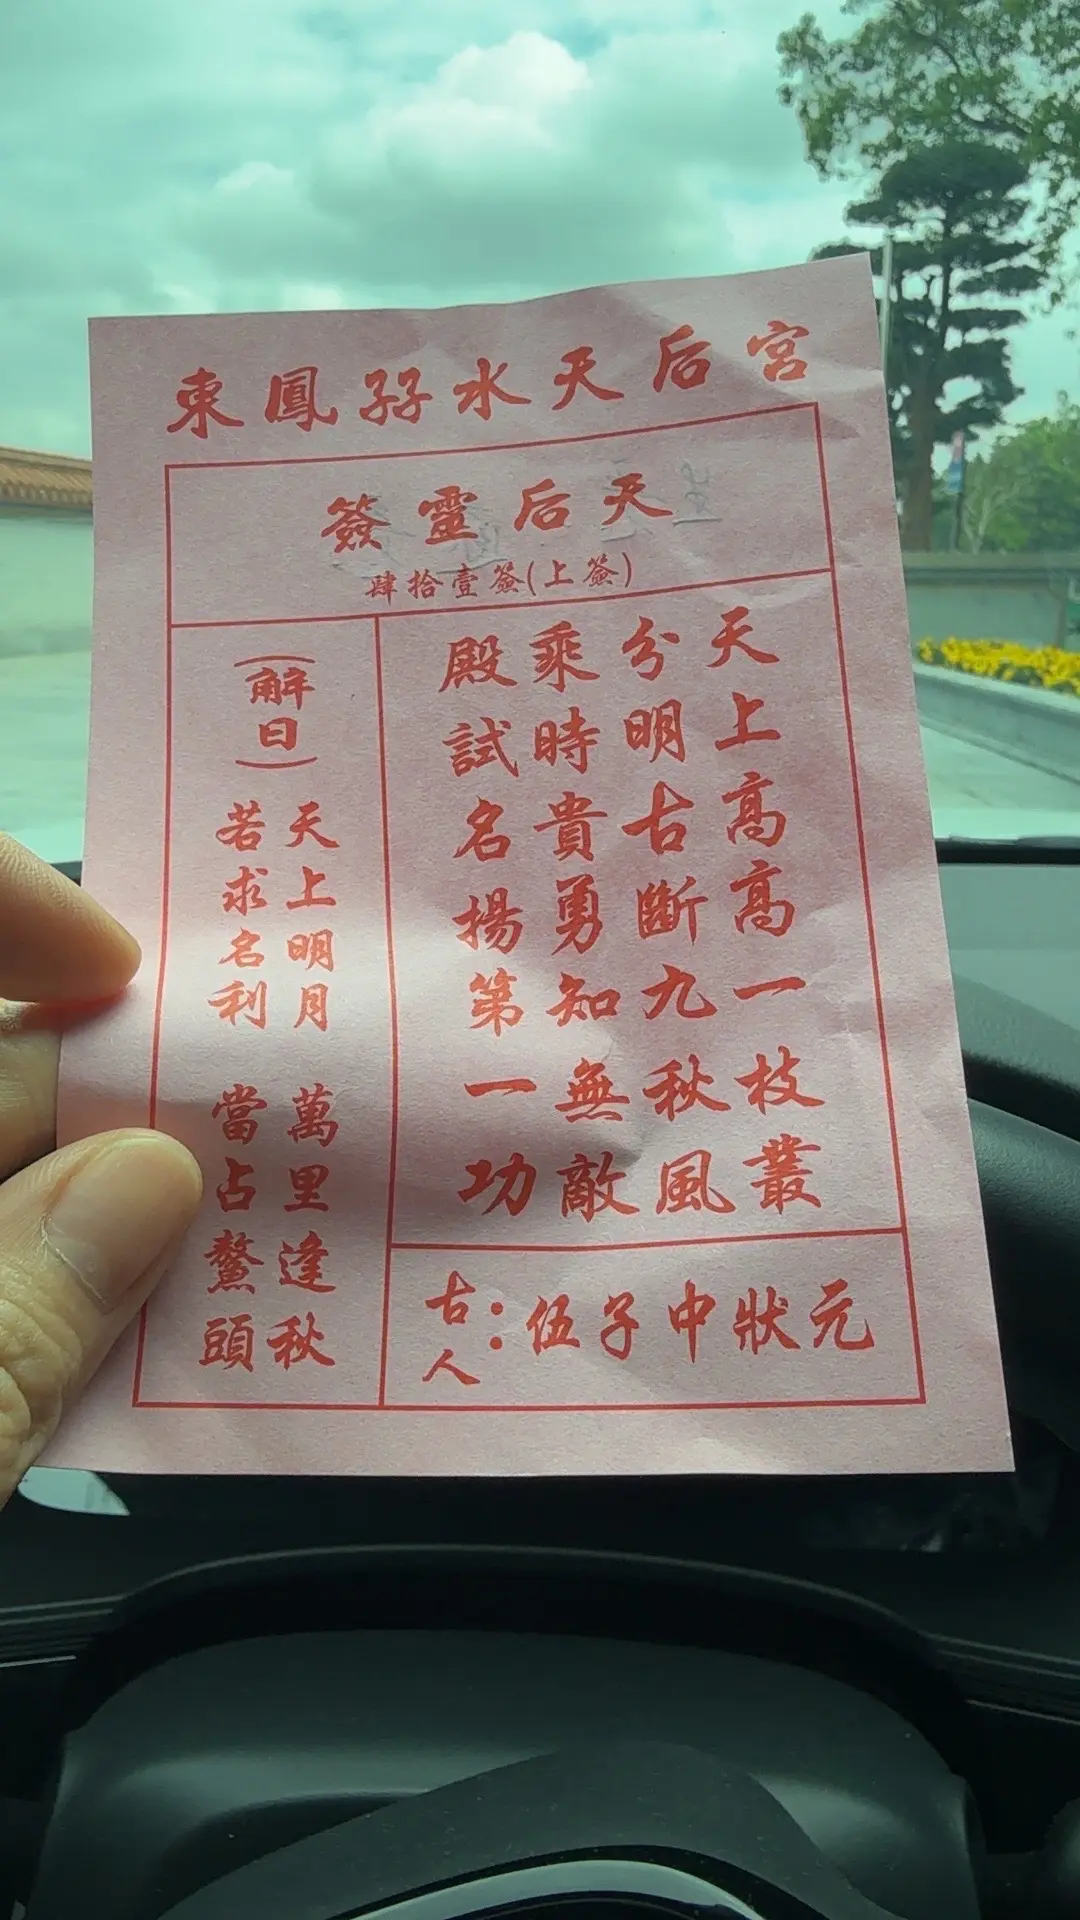 東鳳孖水天后宮
簽靈后天
肆拾壹簽(上簽)
天上高高一枝叢
分明古斷九秋風
乘時貴勇知無敵
殿試名揚第一功
古人：伍子中狀元
(解曰)
天上明月 萬里逢秋
若求名利 當占鰲頭